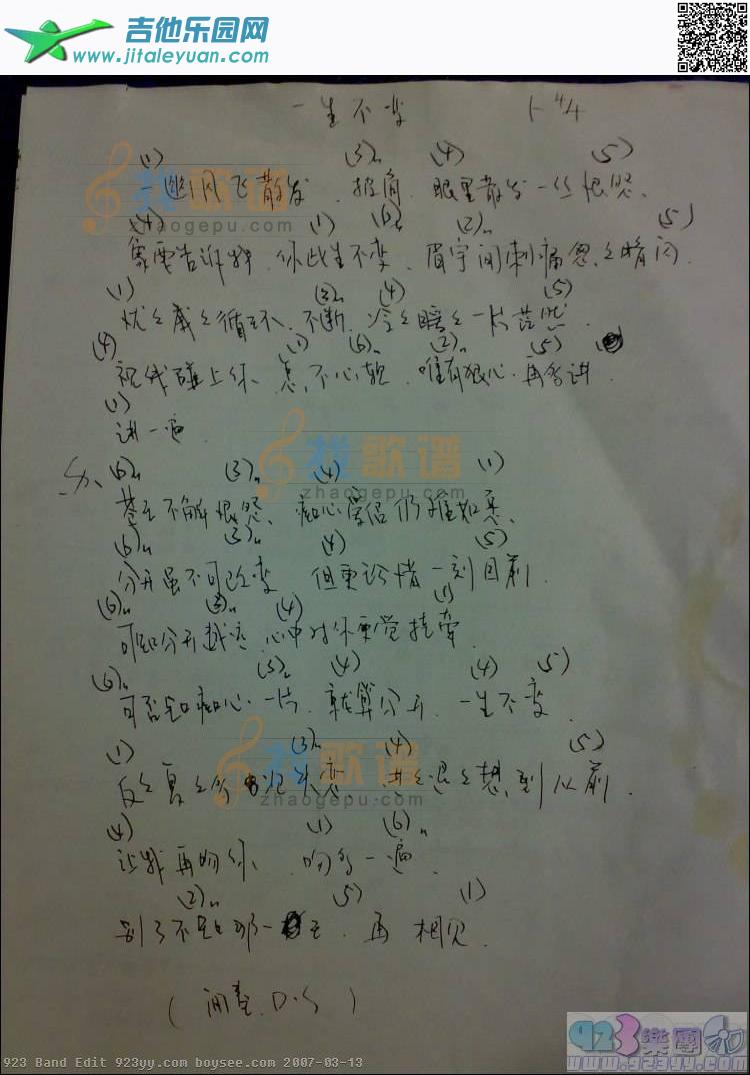 吉他乐园网
www.jitaleyuan.com
一生不变 4/4
(1) (3)m (4) (5)
飞散发 披肩 眼里散发一丝恨怨、
(4) (1) (6)m (2)m (5)
像要告诉我、你此生不变、眉宇间刺痛忽忽暗闪
(1) (3)m (4) (5)
忧忧戚戚循环、不断、冷冷暖暖一片茫然.
(4) (1) (6)m (2)m (5)
视线碰上你、怎、不心软、唯有狠心、再多讲
(1)
讲一遍.
找歌谱
zhaogepu.com
(6)m (3)m (4) (1)
苦于不解恨怨、痴心爱侣仍难如愿、
(6)m (3)m (4) (5)
分开虽不可改变 但更珍惜一刻目前.
(6)m (3)m (4) (1)
可知分开越远、心中对你更觉挂牵
(6)m (3)m (4) (4) (5)
可否知痴心一片、就算分开、一生不变
(1) (3)m (4) (5)
反反复复多次失恋、进进退退想到从前.
(4) (1) (6)m
让我再吻你、吻多一遍
(2)m (5) (1)
别了不知那一天、再 相见.
(间奏、D.S)
923樂團
www.923yy.com
923 Band Edit 923yy.com boysee.com 2007-03-13